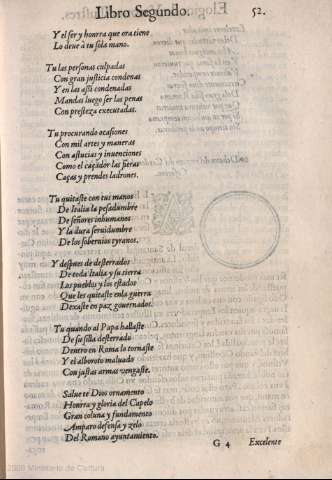 Libro Segundo. 52.
Y el ser y honrra que ora tiene
Lo deue a tu sola mano.
Tu las personas culpadas
Con gran justicia condenas
Y en las assi condenadas
Mandas luego ser las penas
Con presteza executadas.
Tu procurando ocasiones
Con mil artes y maneras
Con astucias y inuenciones
Como el caçador las fieras
Caças y prendes ladrones.
Tu quitaste con tus manos
De Italia la pesadumbre
De señores inhumanos
Y la dura seruidumbre
De los soberuios tyranos.
Y despues de desterrados
De toda Italia y su tierra
Los pueblos y los estados
Que les quitaste enla guerra
Dexaste en paz gouernados.
Tu quando al Papa hallaste
De su silla desterrado
Dentro en Roma lo tornaste
Y el alboroto maluado
Con justas armas vengaste.
Salue te Dios ornamento
Honrra y gloria del Capelo
Gran coluna y fundamento
Amparo defensa y zelo
Del Romano ayuntamiento.
G 4 Excelente
2009 Ministerio de Cultura